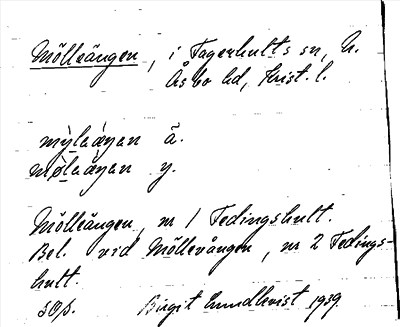 Mölleängen, i Fagerhults sn, N.
Åsbo hd, Krist. l.
mỳlaæ̀ŋan ä.
mø̀laæ̀ŋan y.
Mölleängen, nr 1 Fedingshult.
Bel. vid Möllevången, nr 2 Fedings-
hult.
SOs. Birgit Lundkvist 1939.